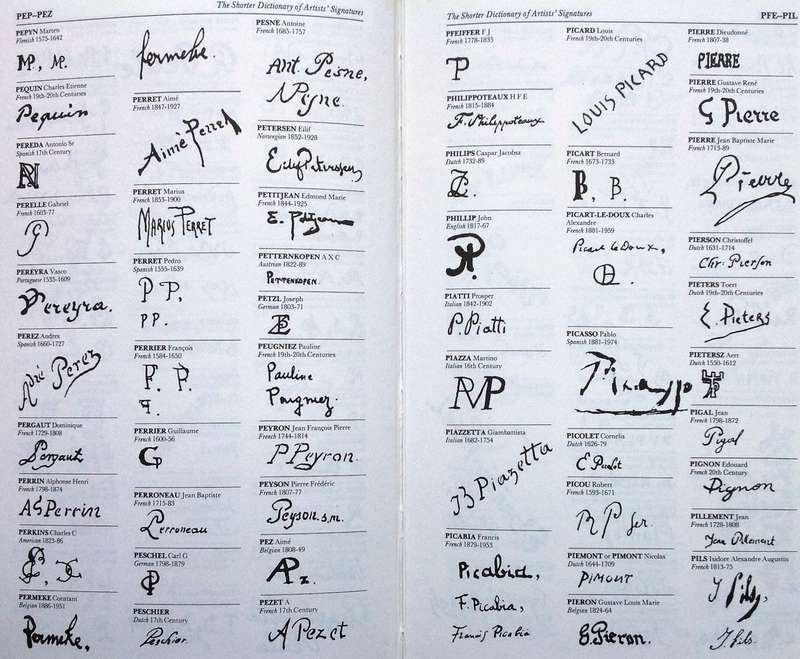 PEP–PEZ
The Shorter Dictionary of Artists' Signatures
PEPYN Marten
Flemish 1575-1642
M, M.
PEQUIN Charles Etienne
French 19th-20th Centuries
Pequin
PEREDA Antonio Sr
Spanish 17th Century
PERELLE Gabriel
French 1603-77
PEREYRA Vasco
Portuguese 1535-1609
Pereyra.
PEREZ Andres
Spanish 1660-1727
Adré Perez
PERGAUT Dominique
French 1729-1808
Pergaut
PERRIN Alphonse Henri
French 1798-1874
AGPerrin
PERKINS Charles C
American 1823-86
PERMEKE Constant
Belgian 1886-1951
Permeke,
permeke.
PERRET Aimé
French 1847-1927
Aimé Perret
PERRET Marius
French 1853-1900
MARIUS PERRET
PERRET Pedro
Spanish 1555-1639
P P,
PP.
PERRIER François
French 1584-1650
PERRIER Guillaume
French 1600-56
PERRONEAU Jean Baptiste
French 1715-83
Perroneau
PESCHEL Carl G
German 1798-1879
PESCHIER
Dutch 17th Century
Peschier.
PESNE Antoine
French 1683-1757
Ant. Pesne,
Pesne.
PETERSEN Eilif
Norwegian 1852-1928
Eilif Petersen,
PETITJEAN Edmond Marie
French 1844-1925
E. Petitjean
PETTERNKOPEN A X C
Austrian 1822-89
PETTENKOPEN.
PETZL Joseph
German 1803-71
PEUGNIEZ Pauline
French 19th-20th Centuries
Pauline
Peugniez.
PEYRON Jean François Pierre
French 1744-1814
P Peyron.
PEYSON Pierre Frédéric
French 1807-77
Peyson.
PEZ Aimé
Belgian 1808-49
APez.
PEZET A
French 17th Century
A Pezet
The Shorter Dictionary of Artists' Signatures
PFE–PIL
PFEIFFER F J
French 1778-1835
P
PHILIPPOTEAUX H F E
French 1815-1884
F. Philippoteaux
PHILIPS Caspar Jacobsz
Dutch 1732-89
PHILLIP John
English 1817-67
PIATTI Prosper
Italian 1842-1902
P. Piatti
PIAZZA Martino
Italian 16th Century
PIAZZETTA Giambattista
Italian 1682-1754
Piazetta
PICABIA Francis
French 1879-1953
Picabia,
F. Picabia,
Francis Picabia
PICARD Louis
French 19th-20th Centuries
LOUIS PICARD
PICART Bernard
French 1673-1733
B, B.
PICART-LE-DOUX Charles
Alexandre
French 1881-1959
Picart le Doux,
PICASSO Pablo
Spanish 1881-1974
Picasso
PICOLET Cornelis
Dutch 1626-79
PICOU Robert
French 1593-1671
R P fer.
PIEMONT or PIMONT Nicolas
Dutch 1644-1709
PIMONT
PIERON Gustave Louis Marie
Belgian 1824-64
G. Pieron.
PIERRE Dieudonné
French 1807-38
PIERRE
PIERRE Gustave René
French 19th-20th Centuries
G Pierre
PIERRE Jean Baptiste Marie
French 1713-89
Pierre
PIERSON Christoffel
Dutch 1631-1714
Chr. Pierson
PIETERS Toert
Dutch 19th-20th Centuries
E. Pieters
PIETERSZ Aert
Dutch 1550-1612
PIGAL Jean
French 1798-1872
Pigal
PIGNON Edouard
French 20th Century
Pignon
PILLEMENT Jean
French 1728-1808
Jean Pillement
PILS Isidore Alexandre Augustin
French 1813-75
J Pils,
J. Pils.